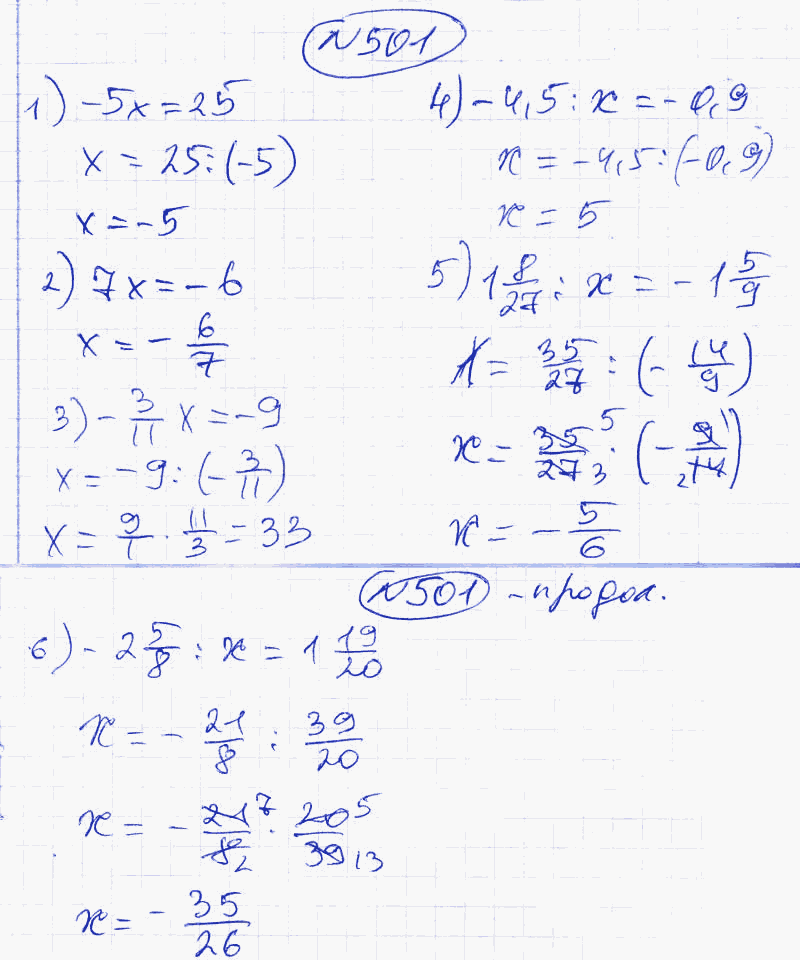 N501
1) -5x = 25
x = 25:(-5)
x = -5
2) 7x = -6
x = - 6/7
3) - 3/11 x = -9
x = -9:(- 3/11)
x = 9/1 · 11/3 = 33
4) - 4,5 : x = - 0,9
x = -4,5:(-0,9)
x = 5
5) 1 8/27 : x = - 1 5/9
x = 35/27 : (- 14/9)
x = 35 5/27 3 · (- 9 1/2 14)
x = - 5/6
N501 - продол.
6) - 2 5/8 : x = 1 19/20
x = - 21/8 : 39/20
x = - 21 7/8 2 · 20 5/39 13
x = - 35/26